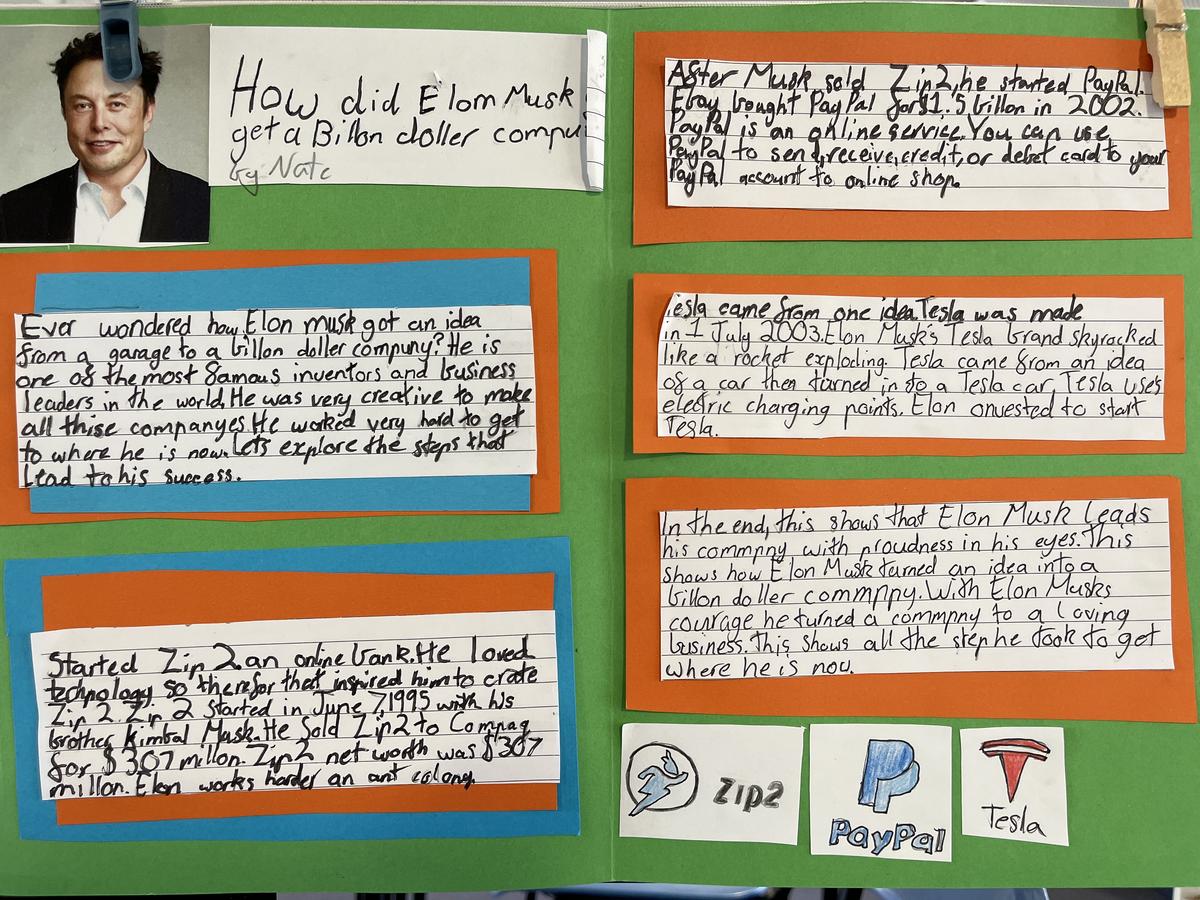 How did Elon Musk
get a Billon doller compu
by Nate
Ever wondered how Elon musk got an idea
from a garage to a billon doller compuny? He is
one of the most famous inventors and business
leaders in the world, He was very creative to make
all thise companyes. He worked very hard to get
to where he is now. Lets explore the steps that
Lead to his success.
Started Zip 2 an online bank. He loved
technology so therefor that inspired him to crate
Zip 2. Zip 2 started in June 7, 1995 with his
brother Kimbal Musk. He Sold Zip2 to Compaq
for $307 millon. Zip2 net worth was $307
millon. Elon works harder an ant colony.
After Musk sold Zip2, he started PayPal.
Ebay bought PayPal for $1.5 billon in 2002.
PayPal is an online service. You can use
PayPal to send, receive, credit, or debet card to your
PayPal account to online shop.
Tesla came from one idea. Tesla was made
in 1 July 2003. Elon Musk's Tesla brand skyracked
like a rocket exploding. Tesla came from an idea
of a car then turned in to a Tesla car, Tesla uses
electric charging points. Elon onvested to start
Tesla.
In the end, this shows that Elon Musk Leads
his commpny with proudness in his eyes. This
shows how Elon Musk turned an idea into a
billon doller commpny. With Elon Musks
courage he turned a commpny to a Loving
business. This shows all the step he took to get
where he is now.
Zip2
PayPal
Tesla